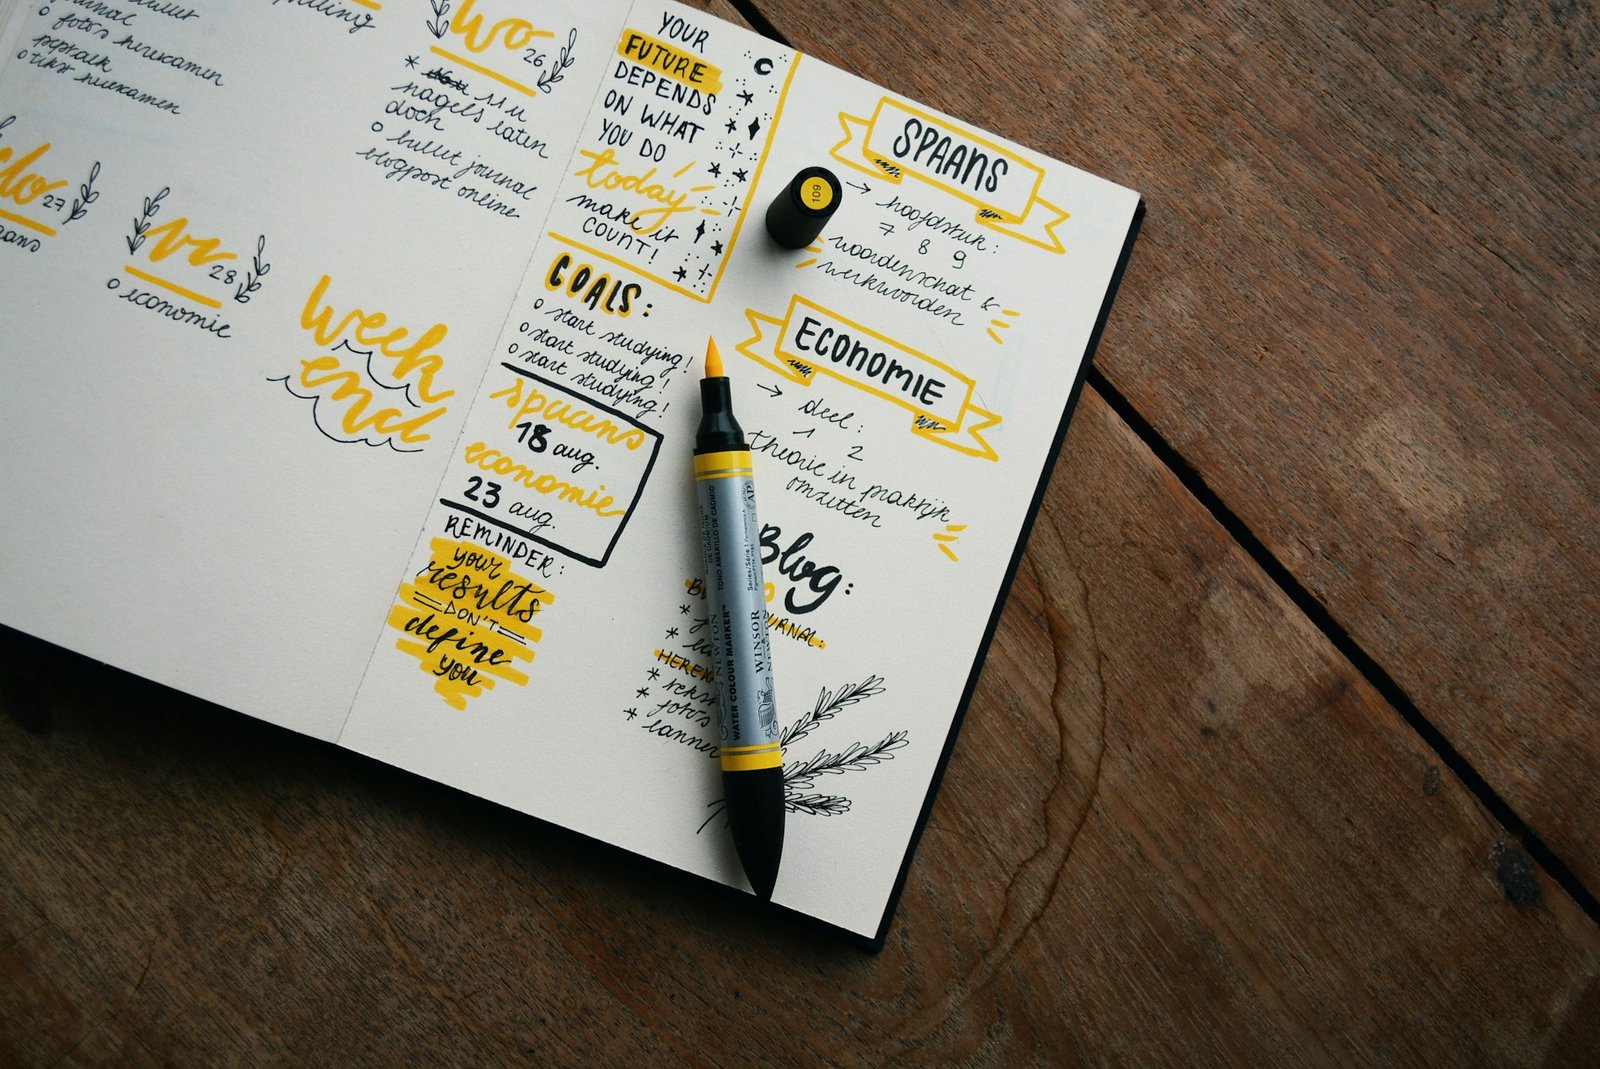 o foto's herexamen
pepsaek
o tikt herexamen
wo
26
* 11 u
nagels laten
doen
o bullet journal
blogpost online
do
27
vr
28
o economie
week
end
YOUR
FUTURE
DEPENDS
ON WHAT
YOU DO
today
make it
COUNT!
GOALS:
o start studying!
o start studying!
o start studying!
spaans
18 aug.
economie
23 aug.
REMINDER:
your
results
DON'T
define
you
SPAANS
→ hoofdstuk:
7 8 9
woordenschat &
werkwoorden
ECONOMIE
→ deel:
1 2
theorie in praktijk
omzetten
Blog:
URNAL:
HEREX
*
*
* tekst
* foto's
* banner
109
WINSOR
NEWTON
WATER COLOUR MARKER™
TONO AMARILLO DE CADMIO
Series/Série 1
AP